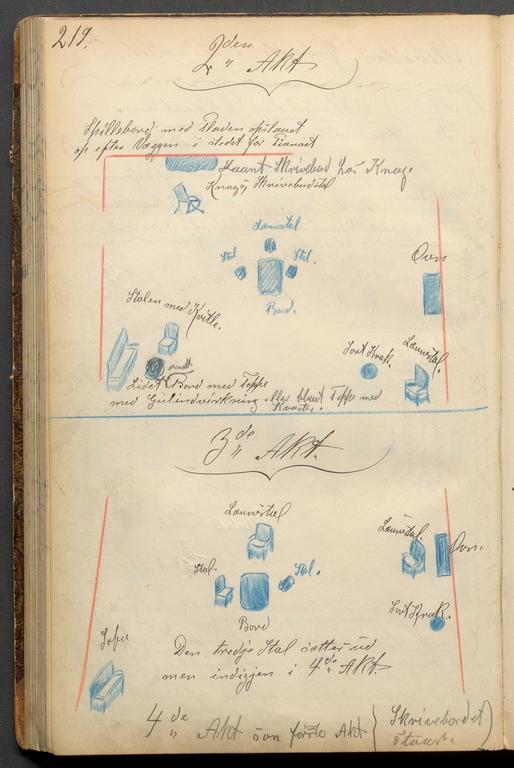 219.
2den Akt
Spillebord med Pladen opslaaet
op efter Væggen i stedet for Pianoet
Laant Skrivebord hos Knag.
Knags Skrivebordstol
Lænestol
Stol
Stol.
Ovn
Bord.
Stolen med Hville.
Sort Krak.
Lænestol.
rundt
Lidet Bord med Teppe
med Gulindvirkning eller blaat Teppe med
Kvaster.
3de Akt
Lænestol
Lænestol.
Ovn.
Stol.
Stol.
Sort Krak.
Bord
Sofa
Den tredje Stol sættes ud
men indigjen i 4de Akt.
4de Akt som første Akt (Skrivebordet
staar.)